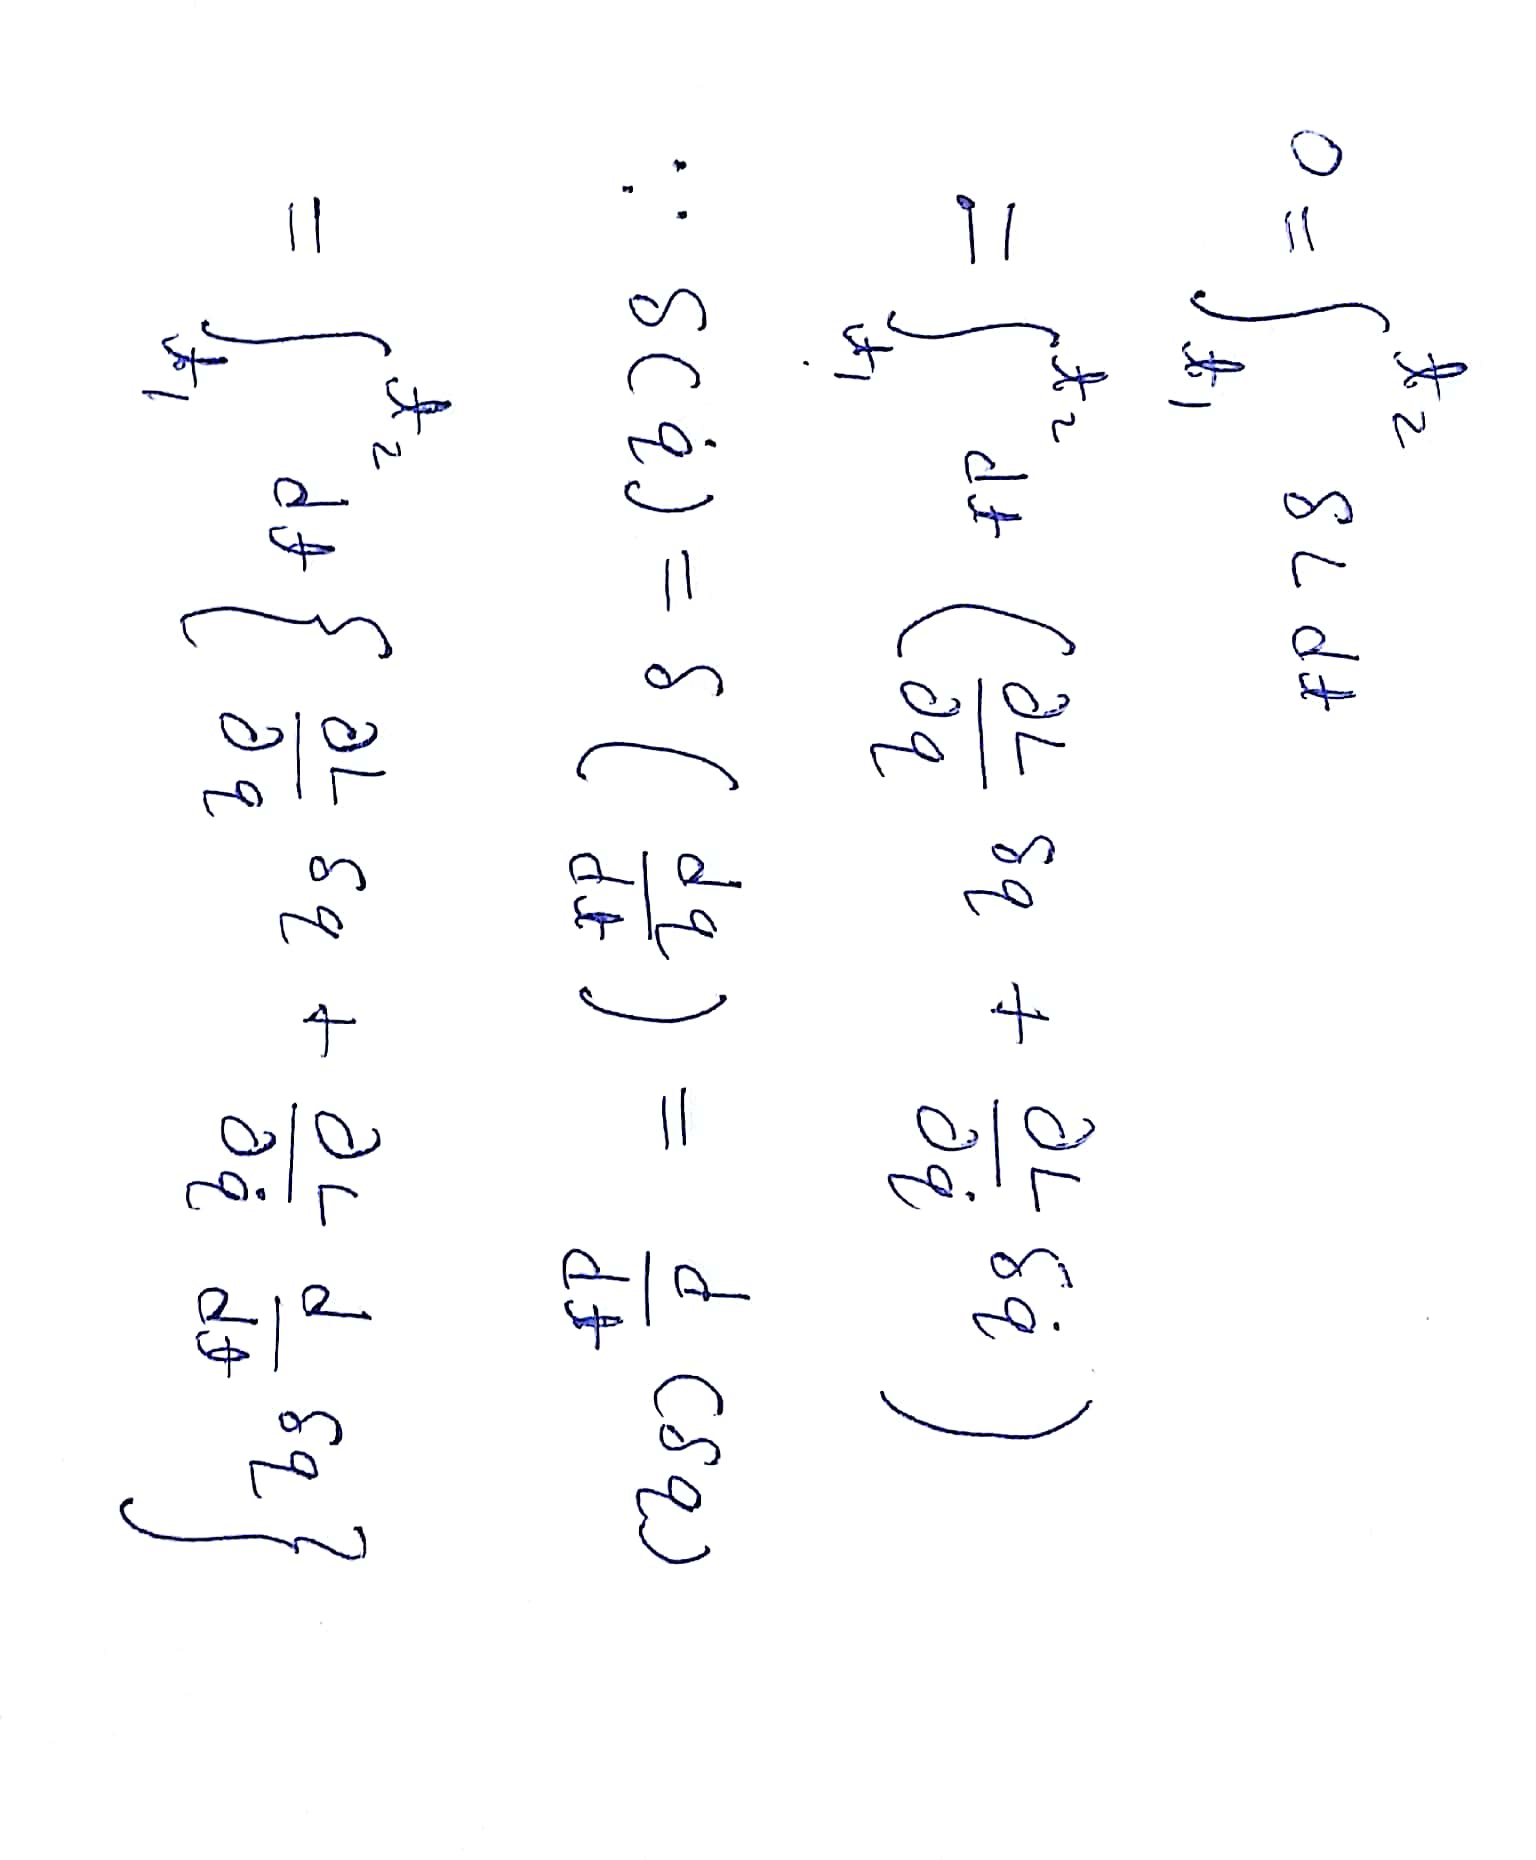 0 = ∫_{t₁}^{t₂} δL dt
= ∫_{t₁}^{t₂} dt ( ∂L/∂q δq + ∂L/∂q̇ δq̇ )
∵ δ(q̇) = δ ( dq/dt ) = d/dt (δq)
= ∫_{t₁}^{t₂} dt { ∂L/∂q δq + ∂L/∂q̇ d/dt δq }